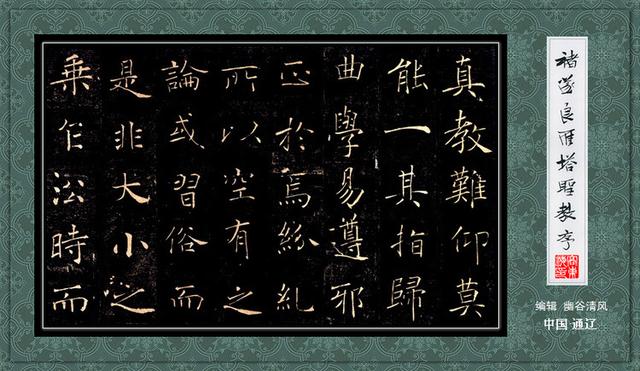 真教難仰莫
能一其指歸
曲學易遵邪
正於焉紛糺
所以空有之
論或習俗而
是非大小之
乘乍沿時而
褚遂良雁塔聖教序
编辑 幽谷清风
中国·通辽